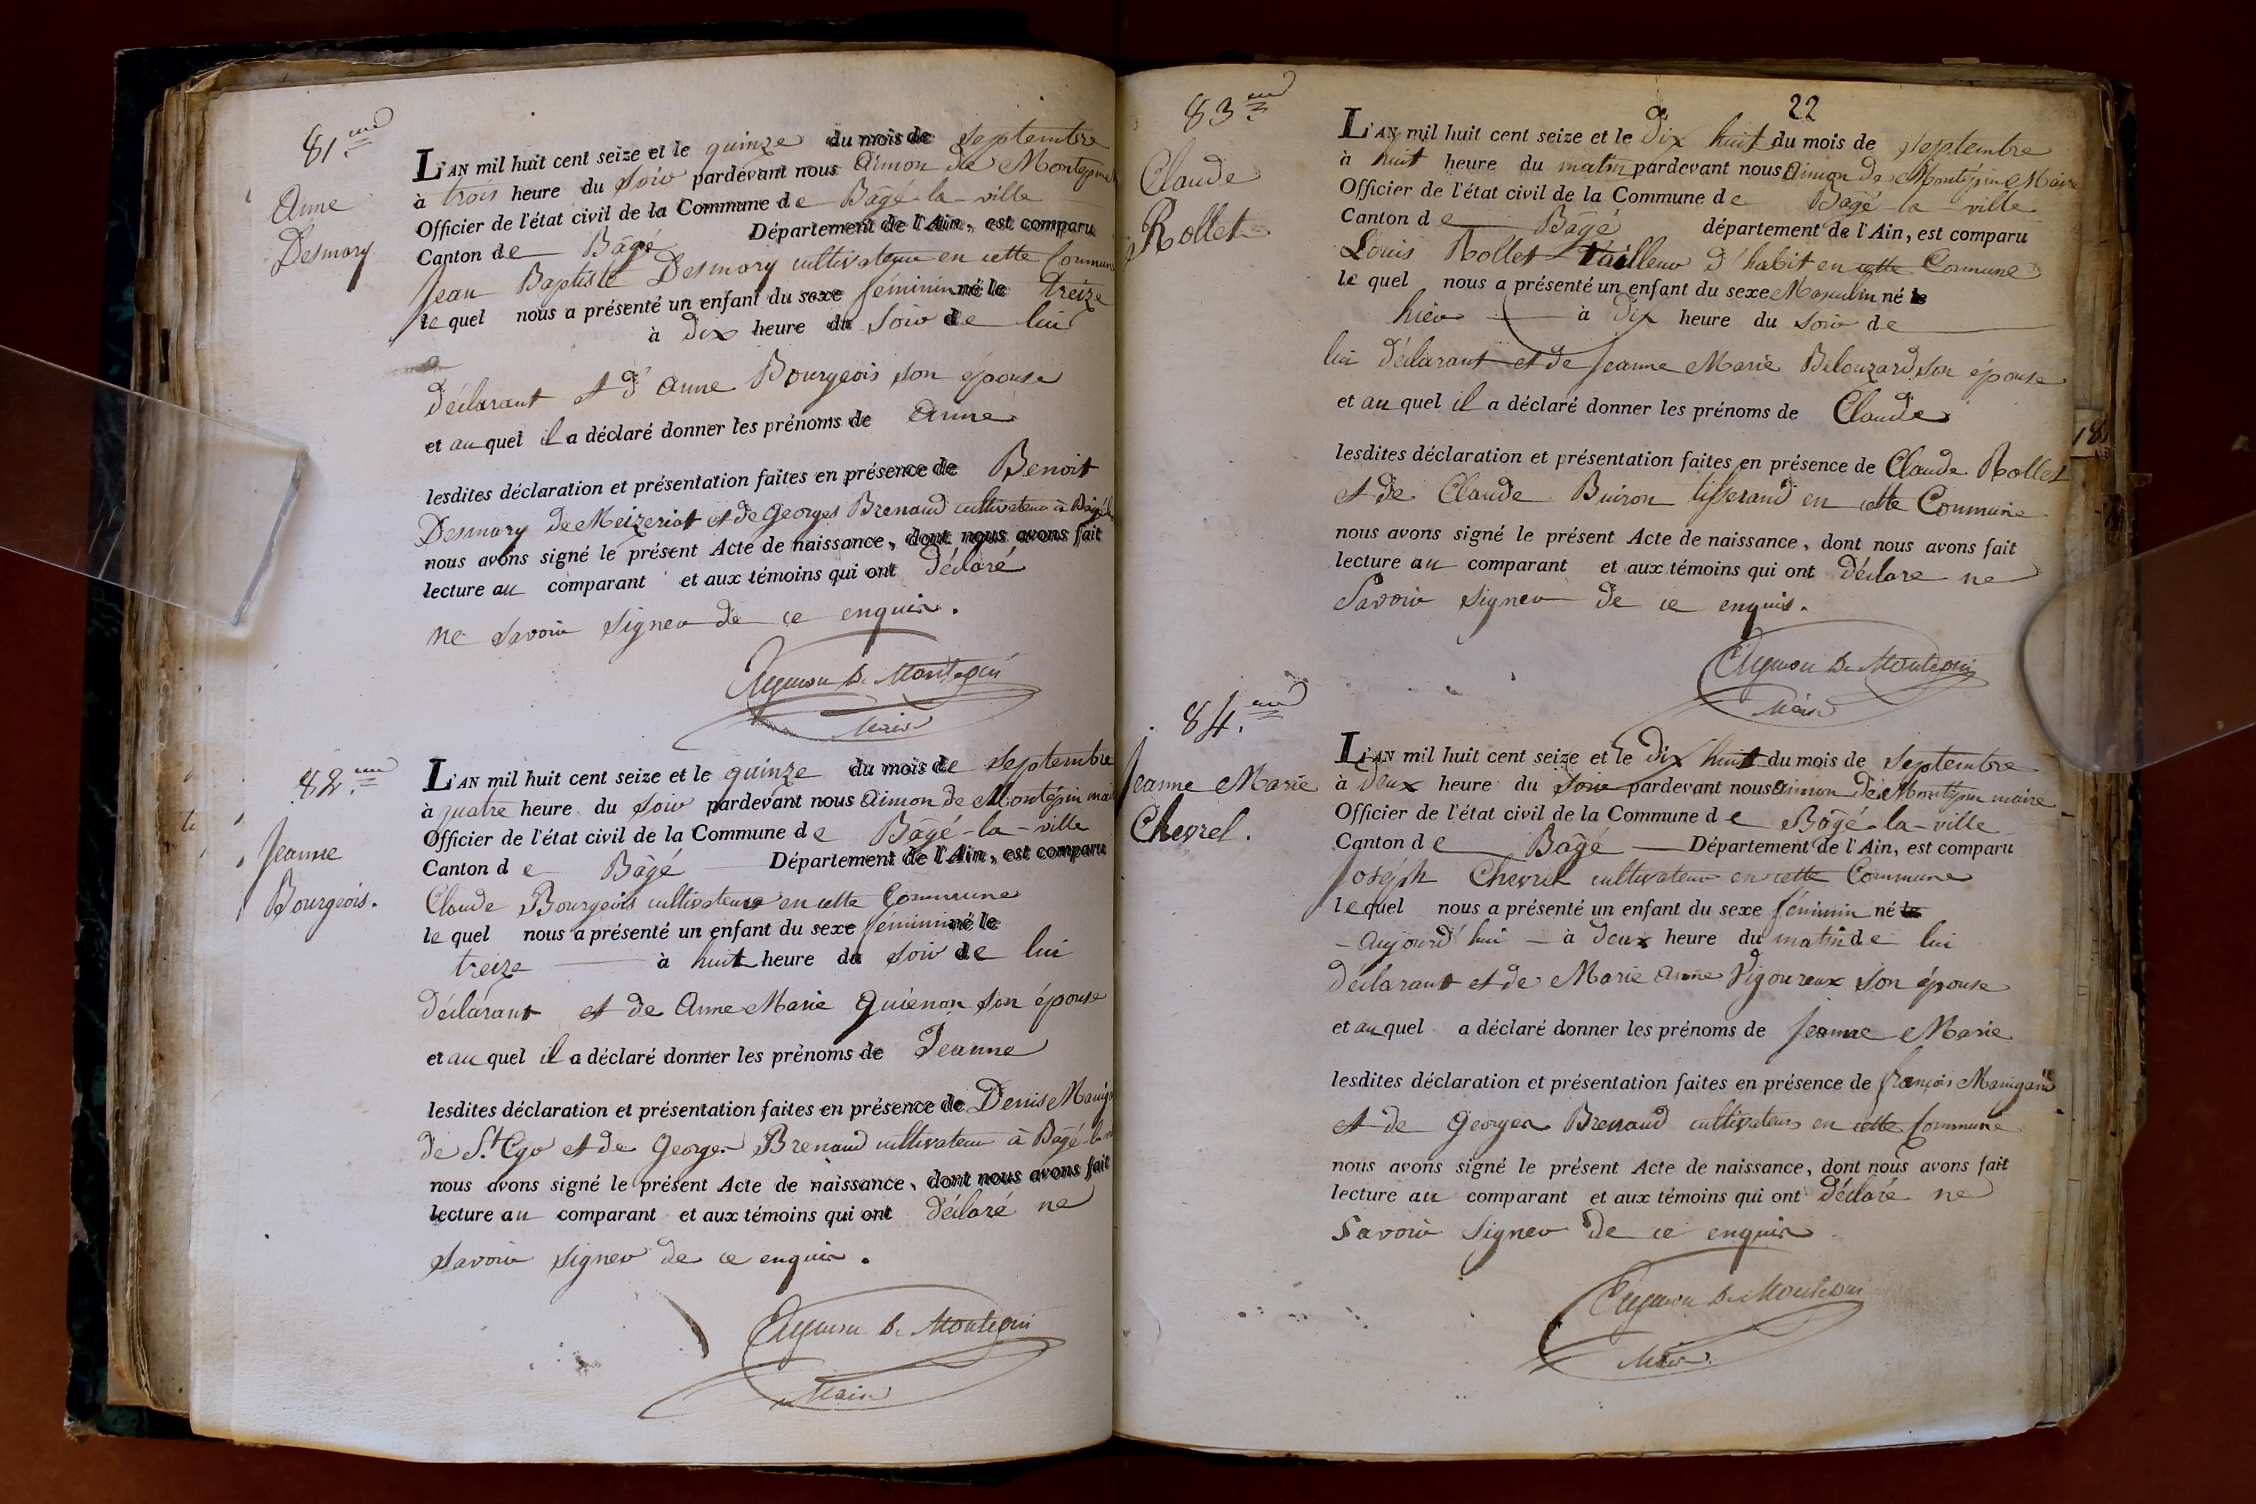 81.me
Anne
Desmory
L'AN mil huit cent seize et le quinze du mois de Septembre
à trois heure du Soir pardevant nous Aimon de Montepin
Officier de l'état civil de la Commune de Bâgé-la-ville
Canton de Bâgé Département de l'Ain, est comparu
Jean Baptiste Desmory cultivateur en cette Commune
lequel nous a présenté un enfant du sexe féminin né le treize
à Dix heure du Soir de lui
Déclarant et d'Anne Bourgeois son épouse
et auquel il a déclaré donner les prénoms de Anne
lesdites déclaration et présentation faites en présence de Benoit
Desmory de Meizeriat et de Georges Brenaud cultivateur à Bâgé la
nous avons signé le présent Acte de naissance, dont nous avons fait
lecture au comparant et aux témoins qui ont Déclaré
ne savoir signer de ce enquis.
Aymon De Montepin
Maire
82.me
Jeanne
Bourgeois.
L'AN mil huit cent seize et le quinze du mois de Septembre
à quatre heure du Soir pardevant nous Aimon de Montépin mai
Officier de l'état civil de la Commune de Bâgé-la-ville
Canton de Bâgé Département de l'Ain, est comparu
Claude Bourgeois cultivateur en cette Commune
lequel nous a présenté un enfant du sexe féminin né le
treize à huit heure du Soir de lui
Déclarant et de Anne Marie Quienon son épouse
et auquel il a déclaré donner les prénoms de Jeanne
lesdites déclaration et présentation faites en présence de Denis
de St. Cyr et de Georges Brenaud cultivateur à Bâgé-la-vi
nous avons signé le présent Acte de naissance, dont nous avons fait
lecture au comparant et aux témoins qui ont Déclaré ne
savoir signer de ce enquis.
Aymon De Montepin
Maire
22
83.me
Claude
Rollet
L'AN mil huit cent seize et le Dix huit du mois de Septembre
à huit heure du matin pardevant nous Aimon De Montépin Maire
Officier de l'état civil de la Commune de Bâgé la-ville
Canton de Bâgé département de l'Ain, est comparu
Louis Rollet Tailleur d'habit en cette Commune
lequel nous a présenté un enfant du sexe Masculin né le
hier à Dix heure du soir de
lui Déclarant et de Jeanne Marie Belouzard son épouse
et auquel il a déclaré donner les prénoms de Claude
lesdites déclaration et présentation faites en présence de Claude Rollet
et de Claude Buiron tisserand en cette Commune
nous avons signé le présent Acte de naissance, dont nous avons fait
lecture au comparant et aux témoins qui ont Déclare ne
Savoir signer de ce enquis.
Aymon De Montepin
Maire
18
84.me
Jeanne Marie
Chevrel.
L'AN mil huit cent seize et le Dix huit du mois de Septembre
à Deux heure du Soir pardevant nous Aimon De Montépin maire
Officier de l'état civil de la Commune de Bâgé-la-ville
Canton de Bâgé Département de l'Ain, est comparu
Joseph Chevrel cultivateur en cette Commune
lequel nous a présenté un enfant du sexe féminin né le
aujourd'hui à Deux heure du matin de lui
Déclarant et de Marie Anne Vigoureux son épouse
et auquel a déclaré donner les prénoms de Jeanne Marie
lesdites déclaration et présentation faites en présence de françois Manigand
et de Georges Brenaud cultivateurs en cette Commune
nous avons signé le présent Acte de naissance, dont nous avons fait
lecture au comparant et aux témoins qui ont Déclaré ne
Savoir Signer de ce enquis
Aymon De Montepin
Maire